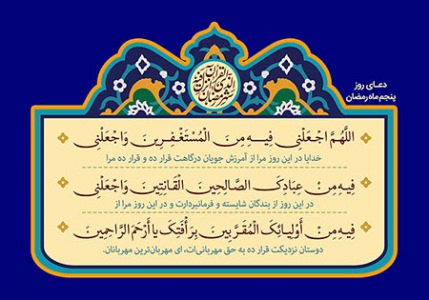 دعای روز
پنجم ماه رمضان
شهر رمضان الذی انزل فیه القرآن
اللَّهُمَّ اجْعَلْنِی فِیهِ مِنَ الْمُسْتَغْفِرِینَ وَاجْعَلْنِی
خدایا در این روز مرا از آمرزش جویان درگاهت قرار ده و قرار ده مرا
فِیهِ مِن عِبَادِکَ الصَّالِحِینَ الْقَانِتِینَ وَاجْعَلْنِی
در این روز از بندگان شایسته و فرمانبردارت و در این روز مرا از
فِیهِ مِن أَوْلِیَائِکَ الْمُقَرَّبِینَ بِرَأْفَتِکَ یَا أَرْحَمَ الرَّاحِمِینَ
دوستان نزدیکت قرار ده به حق مهربانی‌ات، ای مهربان‌ترین مهربانان.